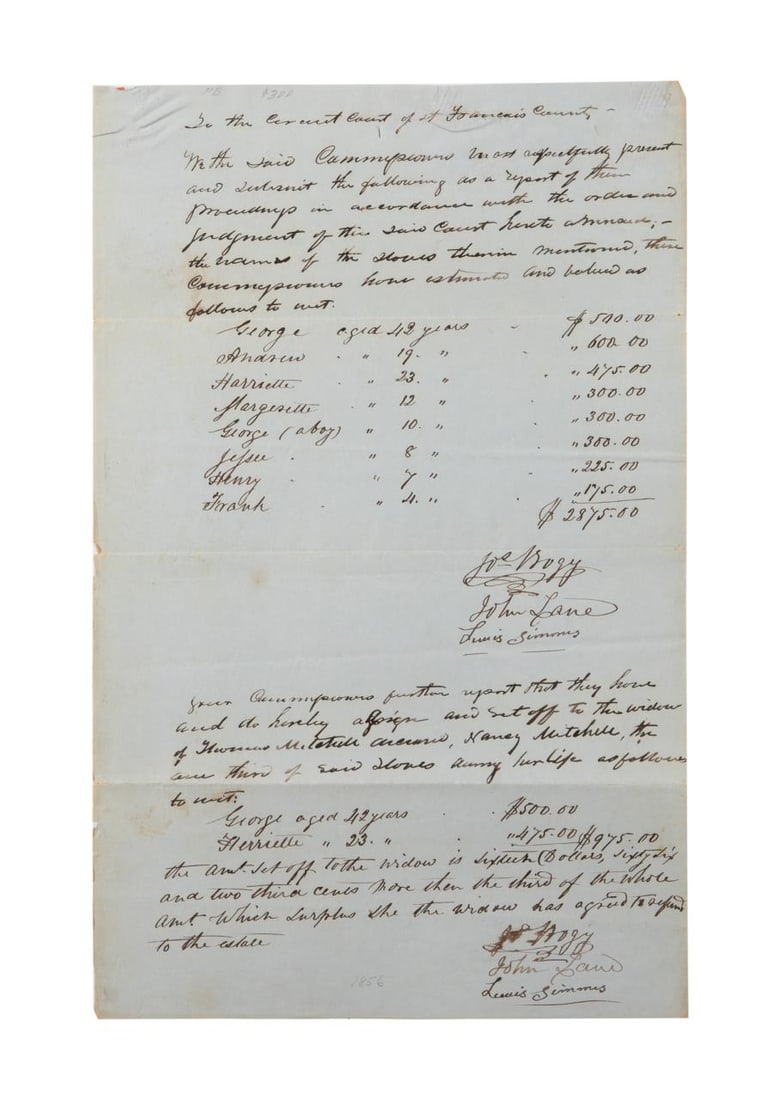 NB $300
To the Circuit Court of St Francois County –
We the Said Commissioners most respectfully present
and Submit the following as a report of their
proceedings in accordance with the order and
Judgment of the Said Court hereto annexed, –
the names of the Slaves therein mentioned, these
Commissioners have estimated and valued as
follows to wit.
George aged 42 years - $500.00
Andrew . " 19. " " 600.00
Harriette . " 23. " . " 475.00
Margerette . " 12 " . " 300.00
George (a boy) " 10. " . " 300.00
Jessee . " 8 " " 300.00
Henry " 7 " . " 225.00
Frank . " 4. " . " 175.00
$2875.00
Jos Bogy
John Lane
Lewis Simms
Your Commissioners further report that they have
and do hereby assign and Set off to the widow
of Thomas Mitchell deceased, Nancy Mitchell, the
one third of Said Slaves during her life as follows
to wit:
George aged 42 years . . $500.00
Herriette " 23. " . " 475.00 $975.00
the Amt. Set off to the widow is Sixteen Dollars, Sixty Six
and two third cents more then the third of the whole
Amt. Which Surplus She the widow has agreed to refund
to the estate
Jos Bogy
John Lane
Lewis Simms
1856